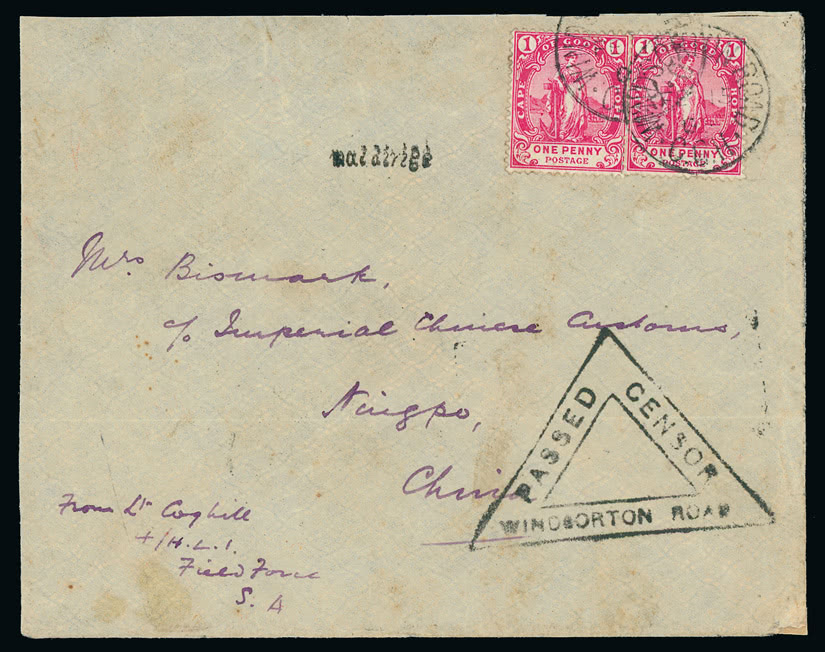 1 OF GOOD 1 1 OF GOOD 1
CAPE HOPE CAPE HOPE
ONE PENNY ONE PENNY
POSTAGE POSTAGE
ROAD
Mrs. Bismark,
c/o Imperial Chinese Customs,
Ningpo,
China
PASSED CENSOR
WINDSORTON ROAD
From Lt Coghill
4/H.L.I.
Field Force
S. A